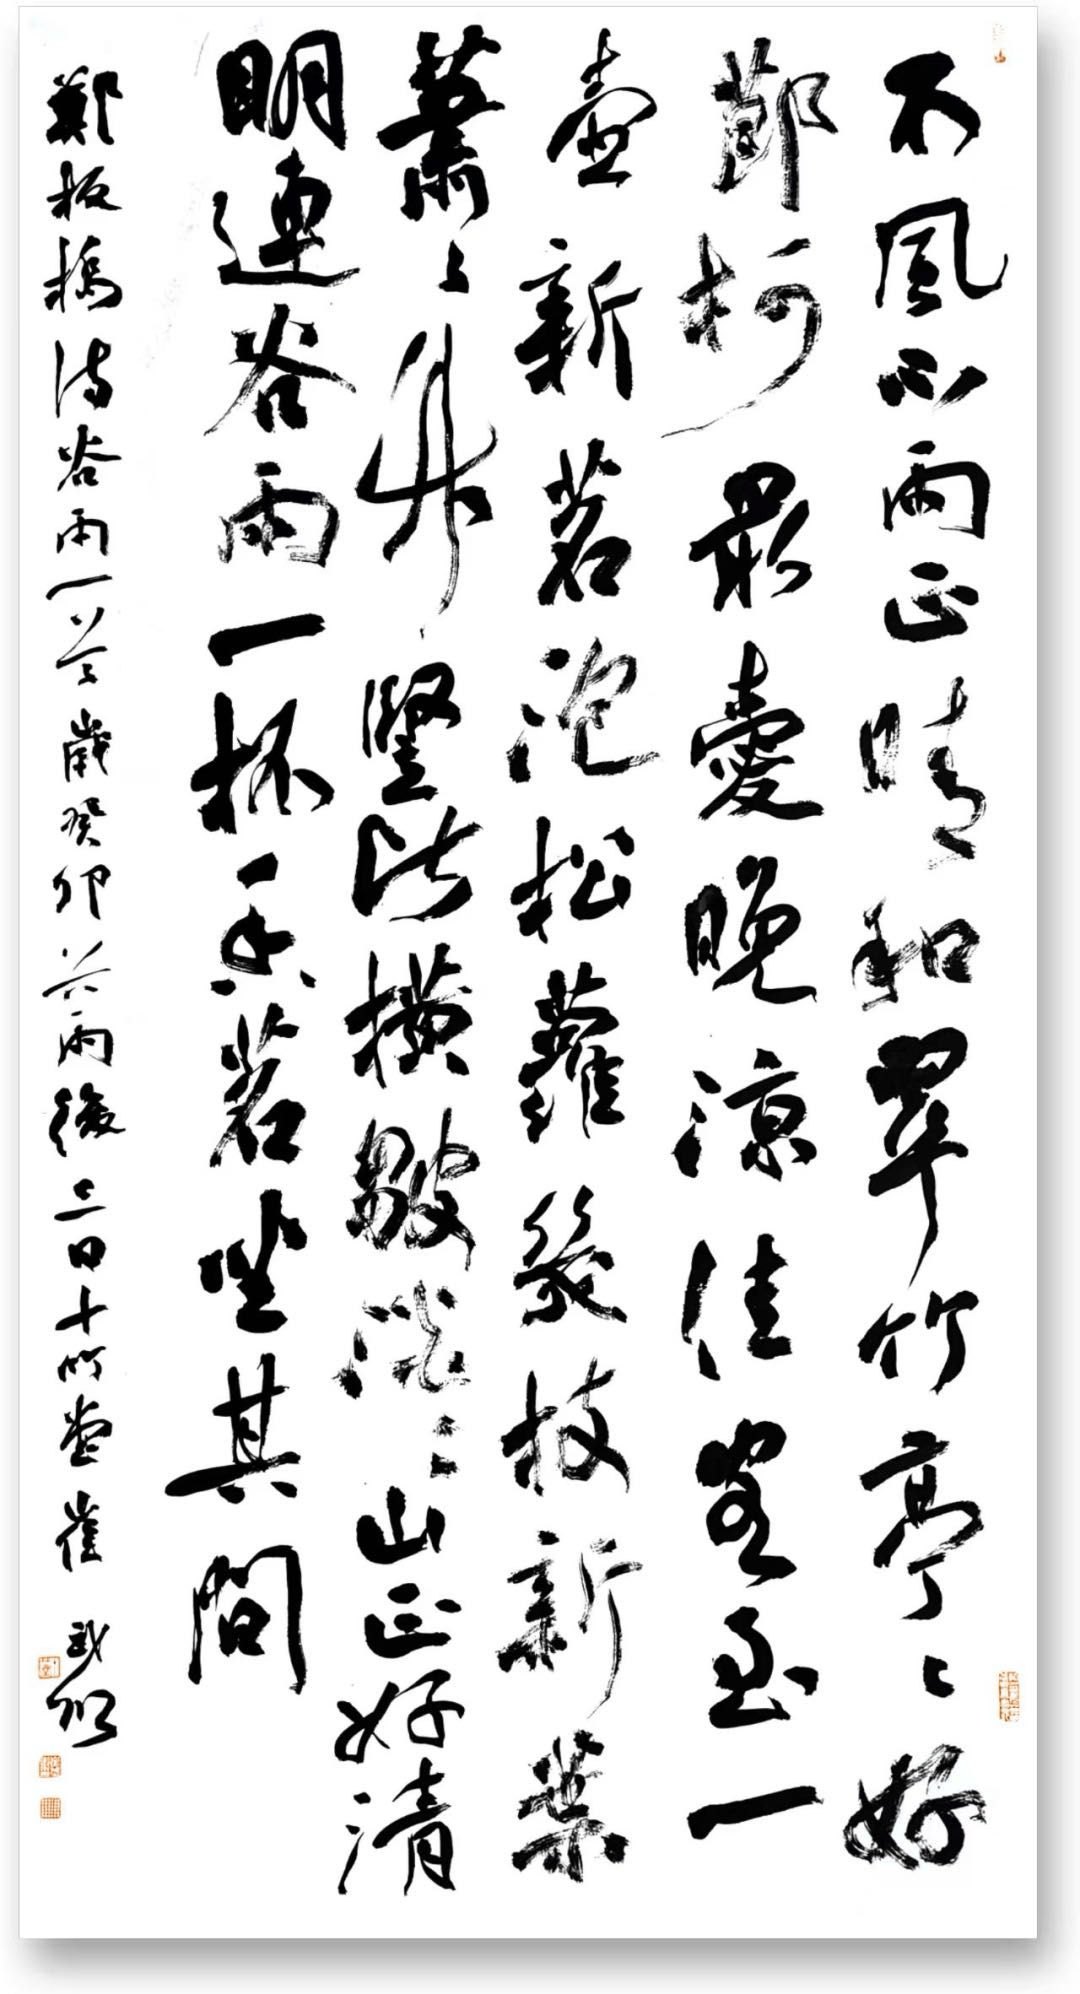 不風不雨正晴和翠竹亭々好
節柯最愛晚涼佳客至一
壺新茗泡松蘿幾枝新葉
蕭々竹橫皴淡々山正好清
明連谷雨一杯香茗坐其間
鄭板橋詩谷雨一首歲癸卯谷雨後三日十竹堂崔